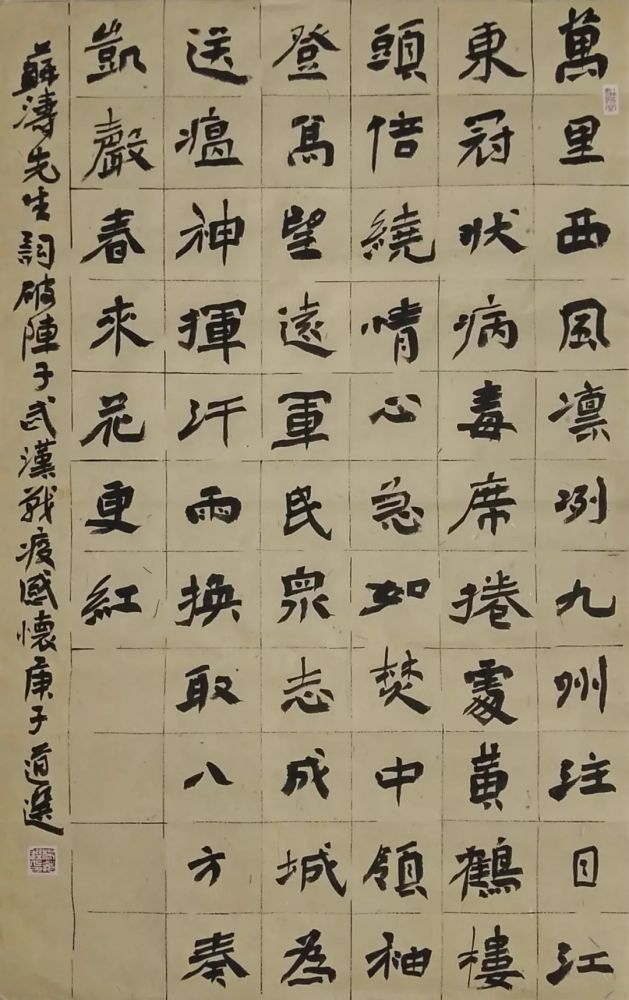 萬里西風凛冽九州注目江
東冠狀病毒席捲處黃鶴樓
頭倍繞情心急如焚中領袖
登高望遠軍民眾志成城為
送瘟神揮汗雨換取八方奏
凱聲春來花更紅
蘇濤先生詞破陣子武漢戰疫感懷庚子道選